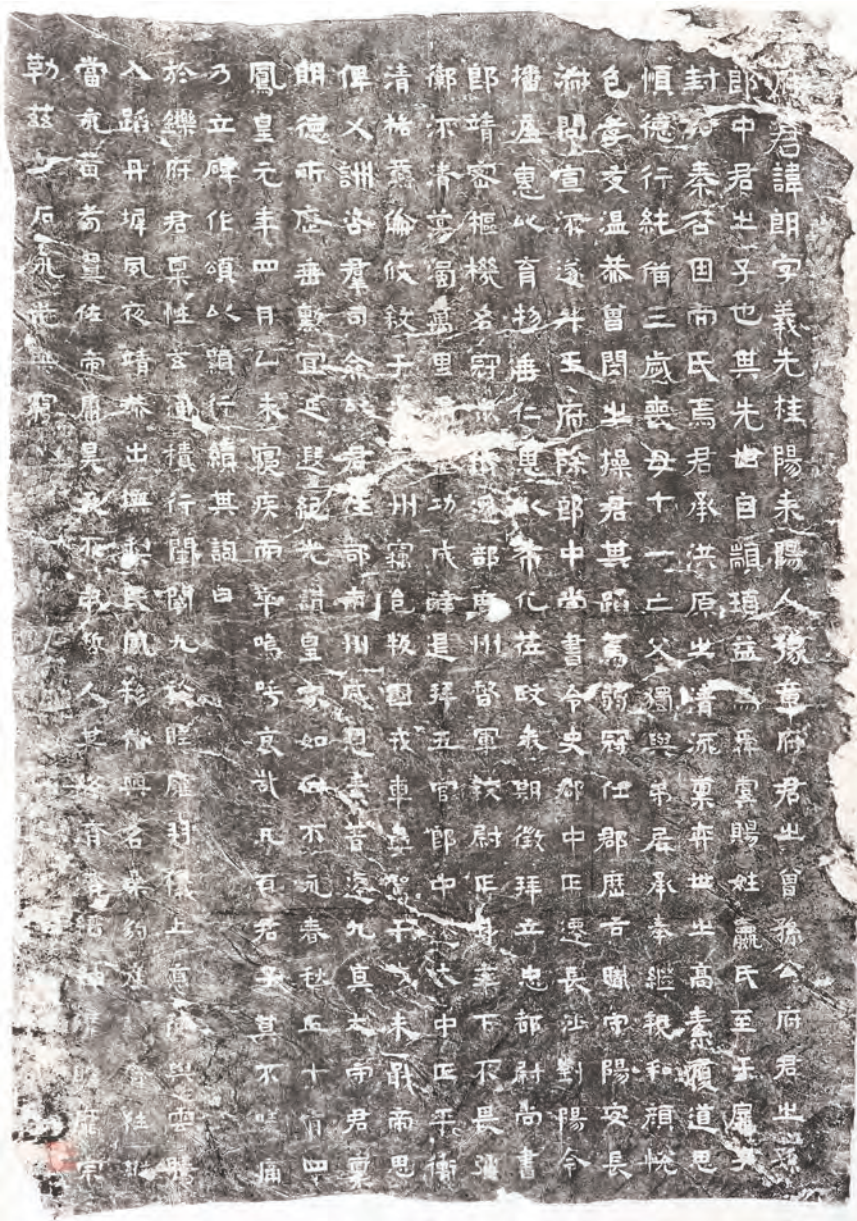 府君諱朗字義先桂陽耒陽人豫章府君之曾孫公府君之孫
郎中君之子也其先出自顓頊益為舜虞賜姓嬴氏至于扉子
封於秦谷因而氏焉君承洪原之清流稟弈世之高素履道思
順德行純備三歲喪母十一亡父獨與弟居承奉繼親和顏悅
色孝友温恭曾閔之操君其蹈焉弱冠仕郡歷右職守陽安長
流聞宣流遂升王府除郎中尚書令史郡中正遷長沙劉陽令
播產惠以育物垂仁恩以布化莅政未期徵拜立忠都尉尚書
郎靖密樞機名冠遷部廣州督軍校尉正身率下不畏強
禦不清其濁萬里功成辭退拜五官郎中遷大中正平衡
清格彝倫攸敘于交州竄邑叛國戎車屢駕干戈未戢帝思
俾乂詶咨羣司僉以君往部南州威恩素著遂九真太守君稟
朗德所歷垂勲宜延遐紀光讚皇家如何不永春秋五十有四
鳳皇元年四月乙未寢疾而卒嗚呼哀哉凡百君子莫不慟
乃立碑作頌以顯行績其詞曰
於鑠府君稟性玄通積行閨閫九族雍羽儀上京德與雲騰
入蹈丹墀夙夜靖恭出撫黎民風移俗興名
當永黃耇翼佐帝庸昊天不弔哲人其終
勒茲玄石永世無窮